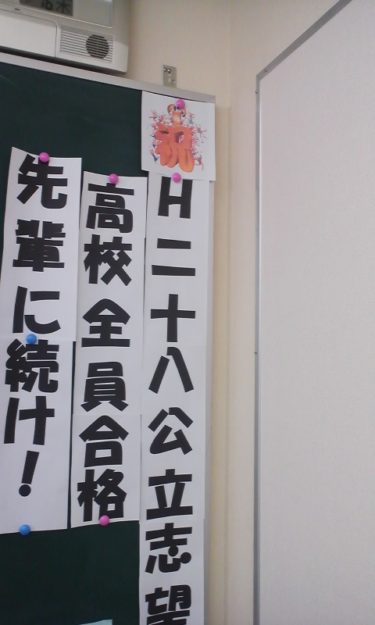 祝
H二十八公立志望
高校全員合格
先輩に続け！